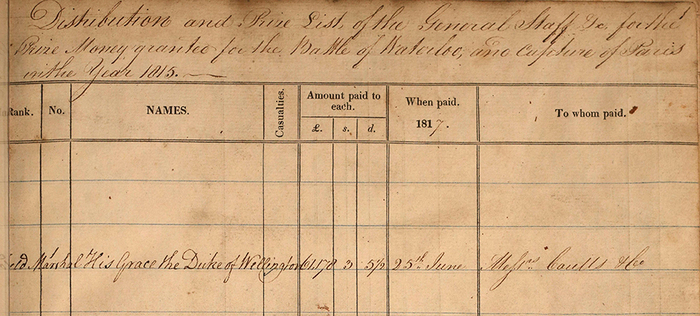 Distribution and Prize List, of the General Staff &c, for the
Prize Money granted for the Battle of Waterloo, and Capture of Paris
in the Year 1815.
Rank. No. NAMES. Casualties. Amount paid to each. When paid. To whom paid.
£. s. d. 1817.
eld Marshal His Grace the Duke of Wellington 61.178 3 5½ 25th June Messrs Coutts & Co